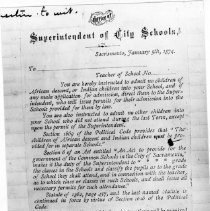 Office of
Superintendent of City Schools,
Sacramento, January 5th, 1874.
To
Teacher of School No.
You are hereby instructed to admit no children of
African descent, or Indian children into your school, and if
any make application for admission, direct them to the Superin-
tendent, who will issue permits for their admission into the
Schools provided for them by law.
You are also instructed to admit no other children into
your school who did not attend school during the last Term, except
upon the permit of the Superintendent.
Section 1669 of the Political Code provides that "The
children of African descent and Indian children must be pro-
vided for in separate Schools."
Section 8 of an Act entitled "An Act to provide for the
government of the Common Schools in the City of Sacramento,
makes it the duty of the Superintendent to
the classes in the Schools and classify the pupils
of School they shall attend, and in connection with the teacher,
to which class or classes in such Schools, and shall issue all
necessary permits for such attendance."
continued in force by virtue of Section of the Political Code.